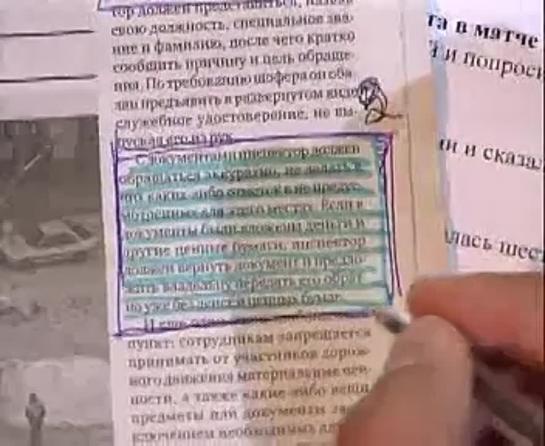 тор должен представиться, назвав
свою должность, специальное зва-
ние и фамилию, после чего кратко
сообщить причину и цель обраще-
ния. По требованию шофера он обя-
зан предъявить в развернутом виде
служебное удостоверение, не вы-
пуская его из рук.
С документами инспектор должен
обращаться аккуратно, не делать в
них каких-либо отметок в не преду-
смотренных для этого местах. Если в
документы были вложены деньги и
другие ценные бумаги, инспектор
должен вернуть документ и предло-
жить владельцу передать его обрат-
но уже без денег и ценных бумаг.
И еще
пункт: сотрудникам запрещается
принимать от участников дорож-
ного движения материальные цен-
ности, а также какие-либо вещи,
предметы или документы за
ключением необходимых для
та в матче
и попроси
и и сказал
лась шест